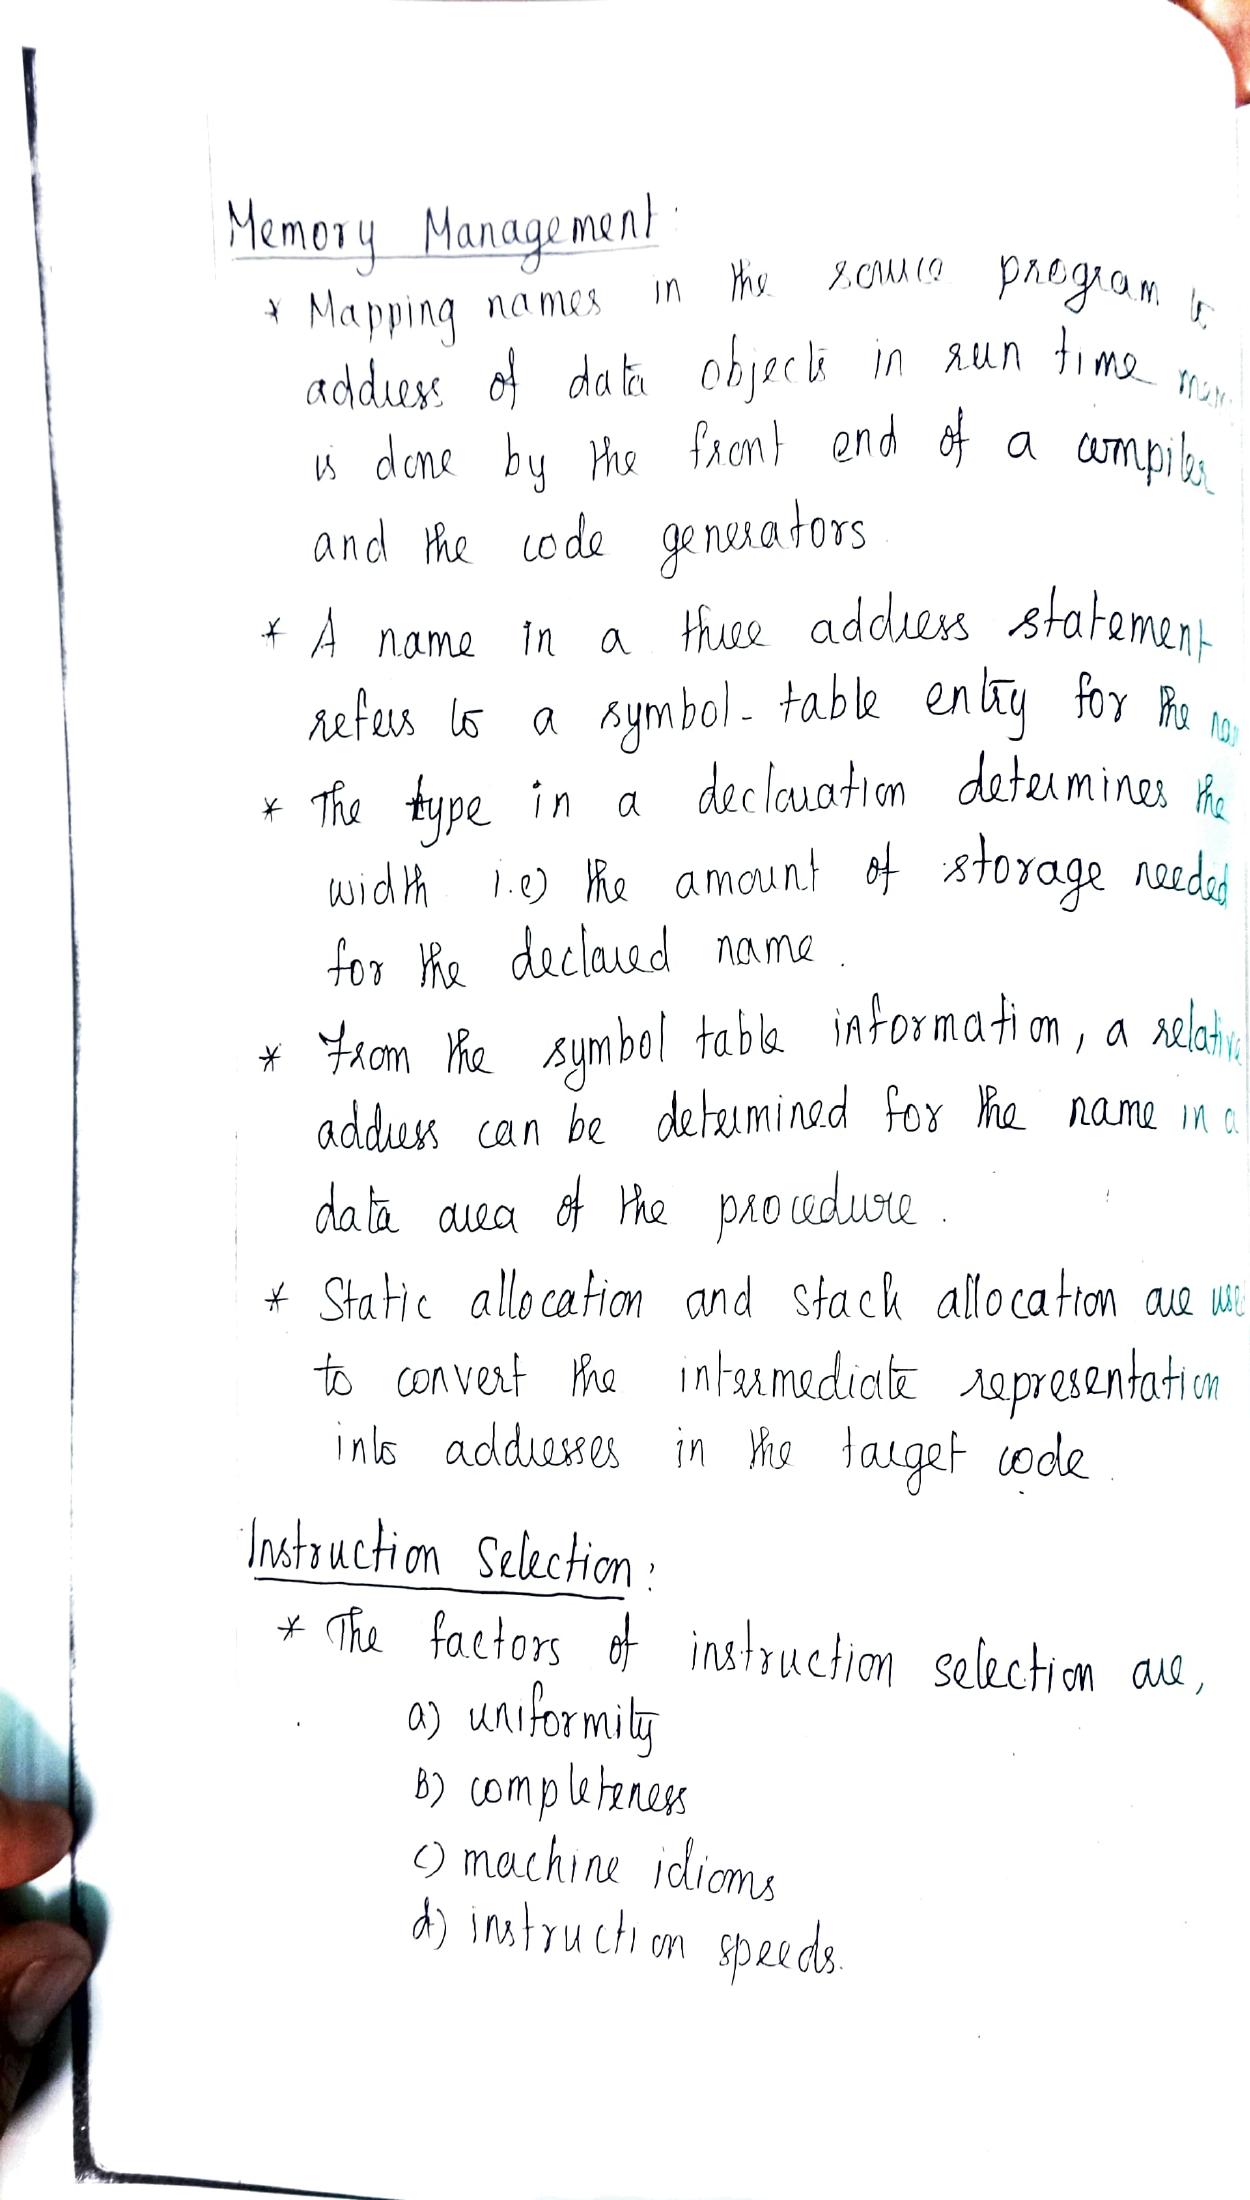 Memory Management:
* Mapping names in the source program to
address of data objects in run time
is done by the front end of a compiler
and the code generators
* A name in a three address statement
refers to a symbol-table entry for the
* The type in a declaration determines the
width i.e) the amount of storage needed
for the declared name.
* From the symbol table information, a relative
address can be determined for the name in a
data area of the procedure.
* Static allocation and stack allocation are use
to convert the intermediate representation
into addresses in the target code.
Instruction Selection:
* The factors of instruction selection are,
a) uniformity
B) completeness
c) machine idioms
d) instruction speeds.